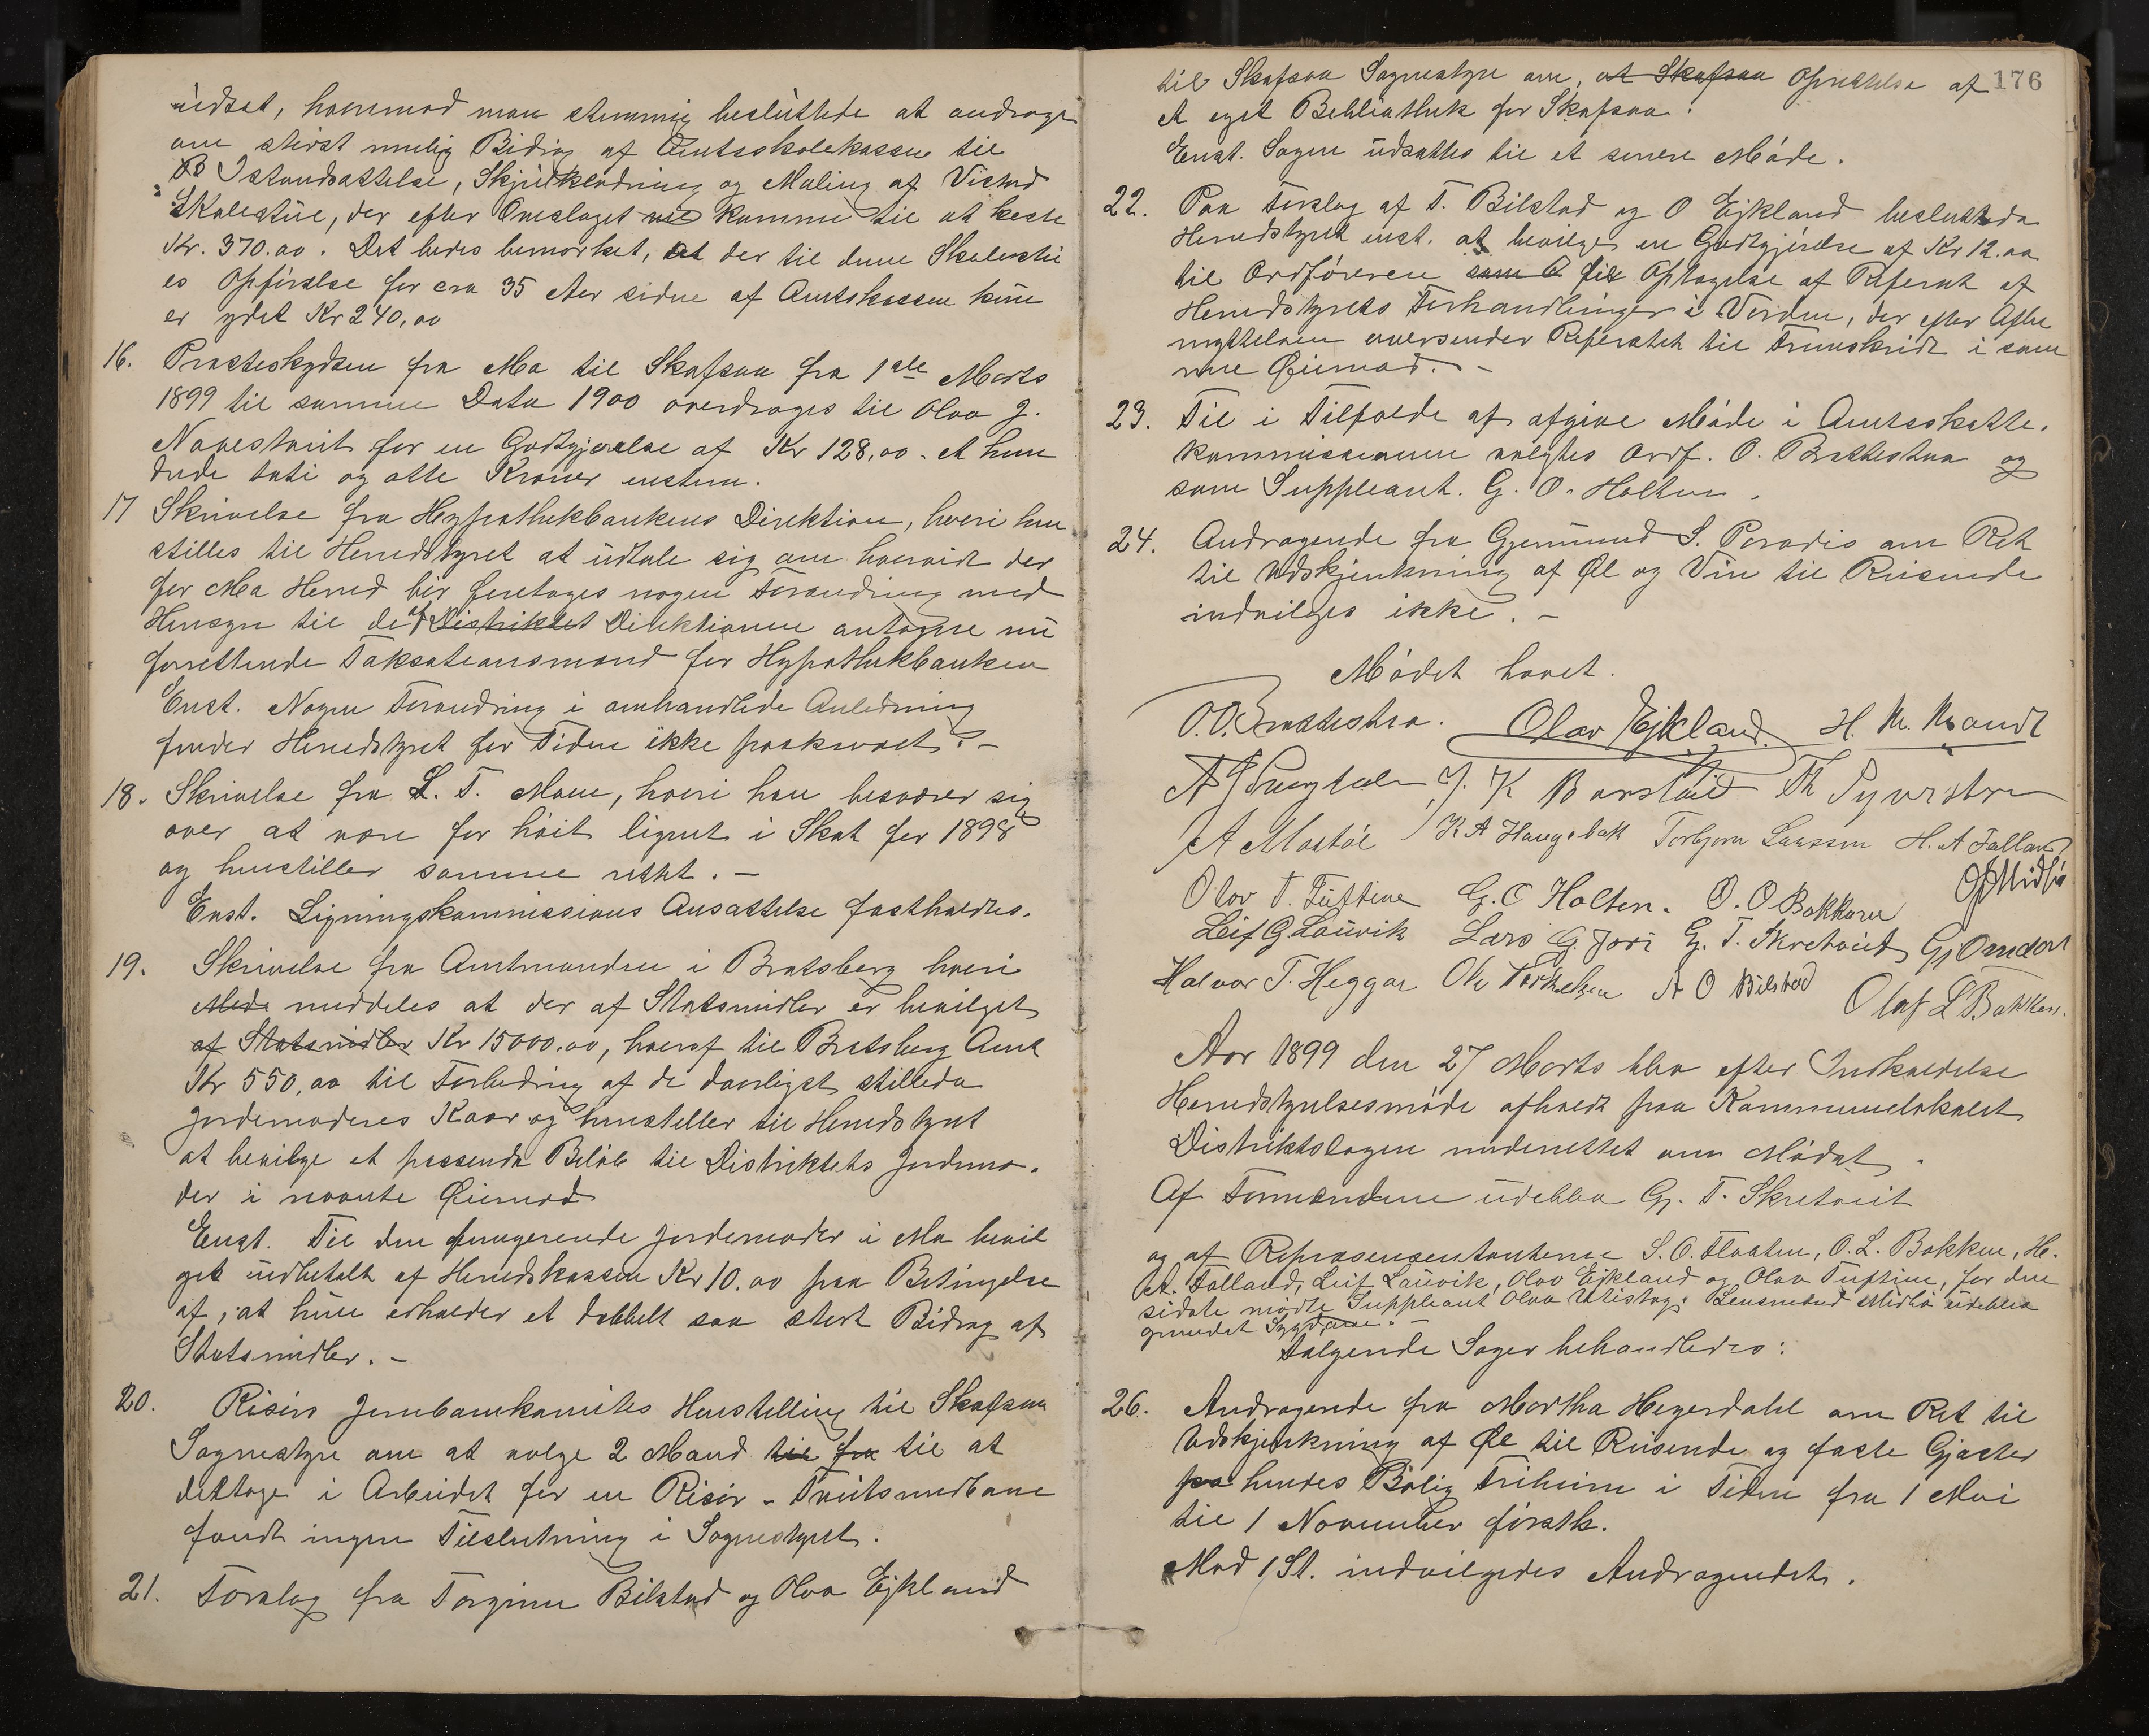 udsat, hvormod man stemmig besluttede at andrage
om størst mulig Bidrag af Amtsskolekassen til
Istandsættelse, Skjulklædning og Maling af Vistad
Skolestue, der efter Overslaget vil komme til at koste
Kr. 370.00. Det bedes bemærket, at der til denne Skolestu
es Opførelse for cra 35 Aar siden af Amtskassen kun
er ydet Kr 240,00
16. Præsteskydsen fra Mo til Skafsaa fra 1ste Marts
1899 til samme Dato 1900 overdroges til Olav J.
Navestveit for en Godtgjørelse af Kr 128,00. et hun
drede tuti og otte Kroner enstem.
17 Skrivelse fra Hypothekbankens Direktion, hvori hen
stilles til Herredstyret at udtale sig om hvorvidt der
for Mo Herred bør foretages nogen Forandring med
Hensyn til de af Distriktet Direktionen antagne nu
forrettende Taksationsmænd for Hypothekbanken
Enst. Nogen Forandring i omhandlede Anledning
finder Herredstyret for Tiden ikke paakrævet. –
18. Skrivelse fra L. T. Moen, hvori han besværer sig
over at være for høit lignet i Skat for 1898
og henstiller samme rettet. –
Enst. Ligningskommissions Ansættelse fastholdtes.
19. Skrivelse fra Amtmanden i Bratsberg hvori
Mede meddeles at der af Statsmidler er bevilget
af Statsmidler Kr 15000.00, hvoraf til Bratsberg Amt
Kr 550,00 til Forbedring af de daarligst stillede
Jordemødres Kaar og henstiller til Herredstyret
at bevilge et passende Beløb til Distriktets Jordemo-
der i nævnte Øiemed
Enst. Til den fungerende Jordemoder i Mo bevil
get udbetalt af Herredskassen Kr 10.00 paa Betingelse
af, at hun erholder et dobbelt saa stort Bidrag af
Statsmidler. –
20. Risørs Jernbanekomites Henstilling til Skafsaa
Sognestyre om at vælge 2 Mænd til fra til at
deltage i Arbeidet for en Risør - Tveitsundbane
fandt ingen Tilslutning i Sognestyret.
21. Forslag fra Torginn Bilstad og Olav Ejkland
176
til Skafsaa Sognestyre om, at Skafsaa Oprettelse af
et eget Bibliothek for Skafsaa:
Enst. Sagen udsattes til et senere Møde.
22. Paa Forslag af T. Bilstad og O Ejkland besluttede
Herredstyret enst. at bevilge en Godtgjørelse af Kr 12.00
til Ordføreren som O for Optagelse af Referat af
Herredstyrets Forhandlinger i Verden, der efter Afbe
nyttelsen oversender Referatet til Fremskridt i sam
me Øiemed. –
23. Til i Tilfælde af afgive Møde i Amtsskatte-
kommissionen valgtes Ordf. O. Brattestaa og
som Suppleant. G. O. Holten.
24. Andragende fra Gjermund S. Paradis om Ret
til Udskjenkning af Øl og Vin til Reisende
indvilges ikke. –
Mødet hævet.
O. O. Brattestaa. Olav Ejkland. H. M. Mandt
J. K Børstad
A Mostøl K A Haugebakk Torbjørn Laassen H. A Falland
Olav T. Tuftine G. O Holten. O. O Bakken O J Midbø
Leif G. Lauvik Lars G. Jore G. T. Skretveit Gj Omdal
Halvor T. Heggar Ole Torkelsen A O Bilstad Olaf L Bakken.
Aar 1899 den 27 Marts blev efter Indkaldelse
Herredstyrelsesmøde afholdt paa Kommunelokalet
Distriktslægen underrettet om Mødet.
Af Formændene udeblev G. T. Skretveit
og af Repræsensentanterne S. O. Flaaten, O. L. Bakken, H.
A. Falland, Leif Lauvik, Olav Ejkland og Olav Tuftine, for den
sidste mødte Suppleant Olav Utistog. Lensmand Midbø udeblev
grundet Sygdom. –
Følgende Sager behandledes:
26. Andragende fra Martha Hegerdahl om Ret til
Udskjenkning af Øl til Reisende og faste Gjæster
paa hendes Bolig Triheim i Tiden fra 1 Mai
til 1 November førstk.
Mod 1 St. indvilgedes Andragendet.